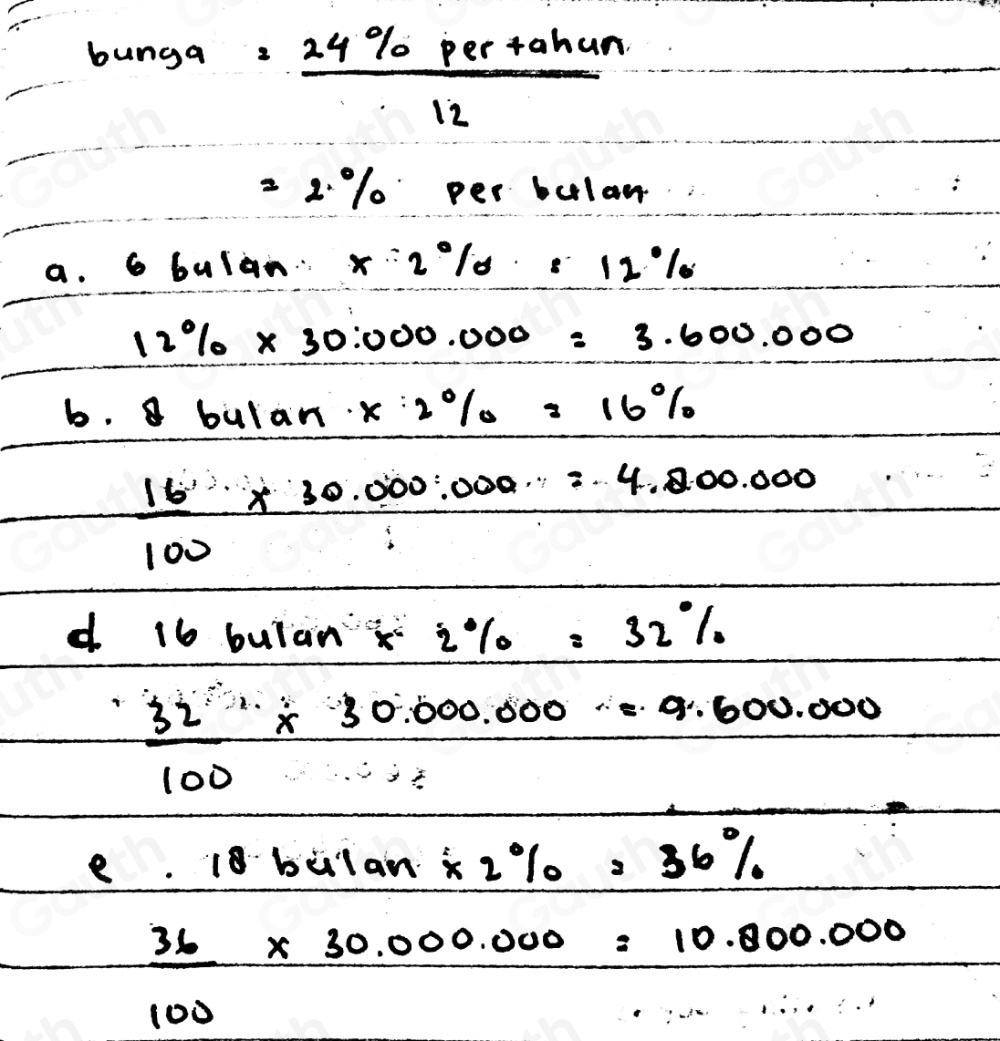 bunga = 24% per tahun
12
= 2% per bulan
a. 6 bulan x 2% = 12%
12% x 30.000.000 = 3.600.000
b. 8 bulan x 2% = 16%
16 x 30.000.000 = 4.800.000
100
d 16 bulan x 2% = 32%
32 x 30.000.000 = 9.600.000
100
e. 18 bulan x 2% = 36%
36 x 30.000.000 = 10.800.000
100